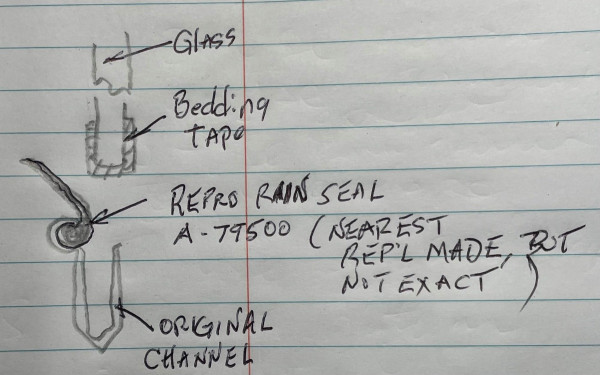 Glass
Bedding
TAPE
REPRO RAIN SEAL
A-79500 (NEAREST
REP'L MADE, BUT
NOT EXACT)
ORIGINAL
CHANNEL